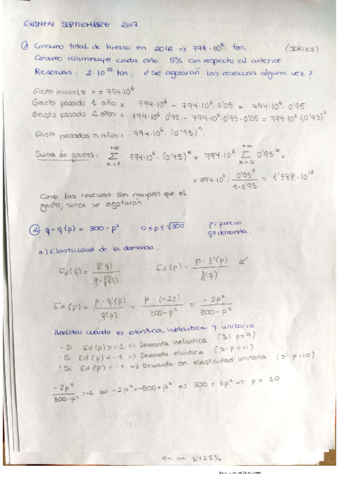 EXAMEN SEPTIEMBRE 2017
① Consumo total de hierro en 2016 => 794·10⁶ ton. (SERIES)
Consumo disminuye cada año 5% con respecto al anterior
Reservas: 2·10¹⁰ ton. ¿Se agotarán las reservas alguna vez?
Gasto inicial: x = 794·10⁶
Gasto pasado 1 año = 794·10⁶ - 794·10⁶·0'05 = 794·10⁶·0'95
Gasto pasado 2 años = 794·10⁶·0'95 - 794·10⁶·0'95·0'05 = 794·10⁶(0'95)²
Gasto pasados n años = 794·10⁶·(0'95)ⁿ.
Suma de gastos: Σ 794·10⁶·(0'95)ⁿ = 794·10⁶ Σ 0'95ⁿ =
= 794·10⁶· 0'95⁰/1-0'95 = 1'588·10¹⁰
Como las reservas son mayores que el
gasto, nunca se agotarán.
② q = q(p) = 300-p² 0≤p≤√300 p: precio
q: demanda.
a) Elasticidad de la demanda.
Ed(p) = p·q'(p)/q(p) = p·(-2p)/300-p² = -2p²/300-p²
Analizar cuándo es elástica, inelástica y unitaria
- Si Ed(p) > -1 => Demanda inelástica (Si p=9)
- Si Ed(p) < -1 => Demanda elástica (Si p=11)
- Si Ed(p) = -1 => Demanda con elasticidad unitaria (Si p=10)
-2p²/300-p² = -1 <=> -2p² = -300+p² => 300 = 3p² => p = 10